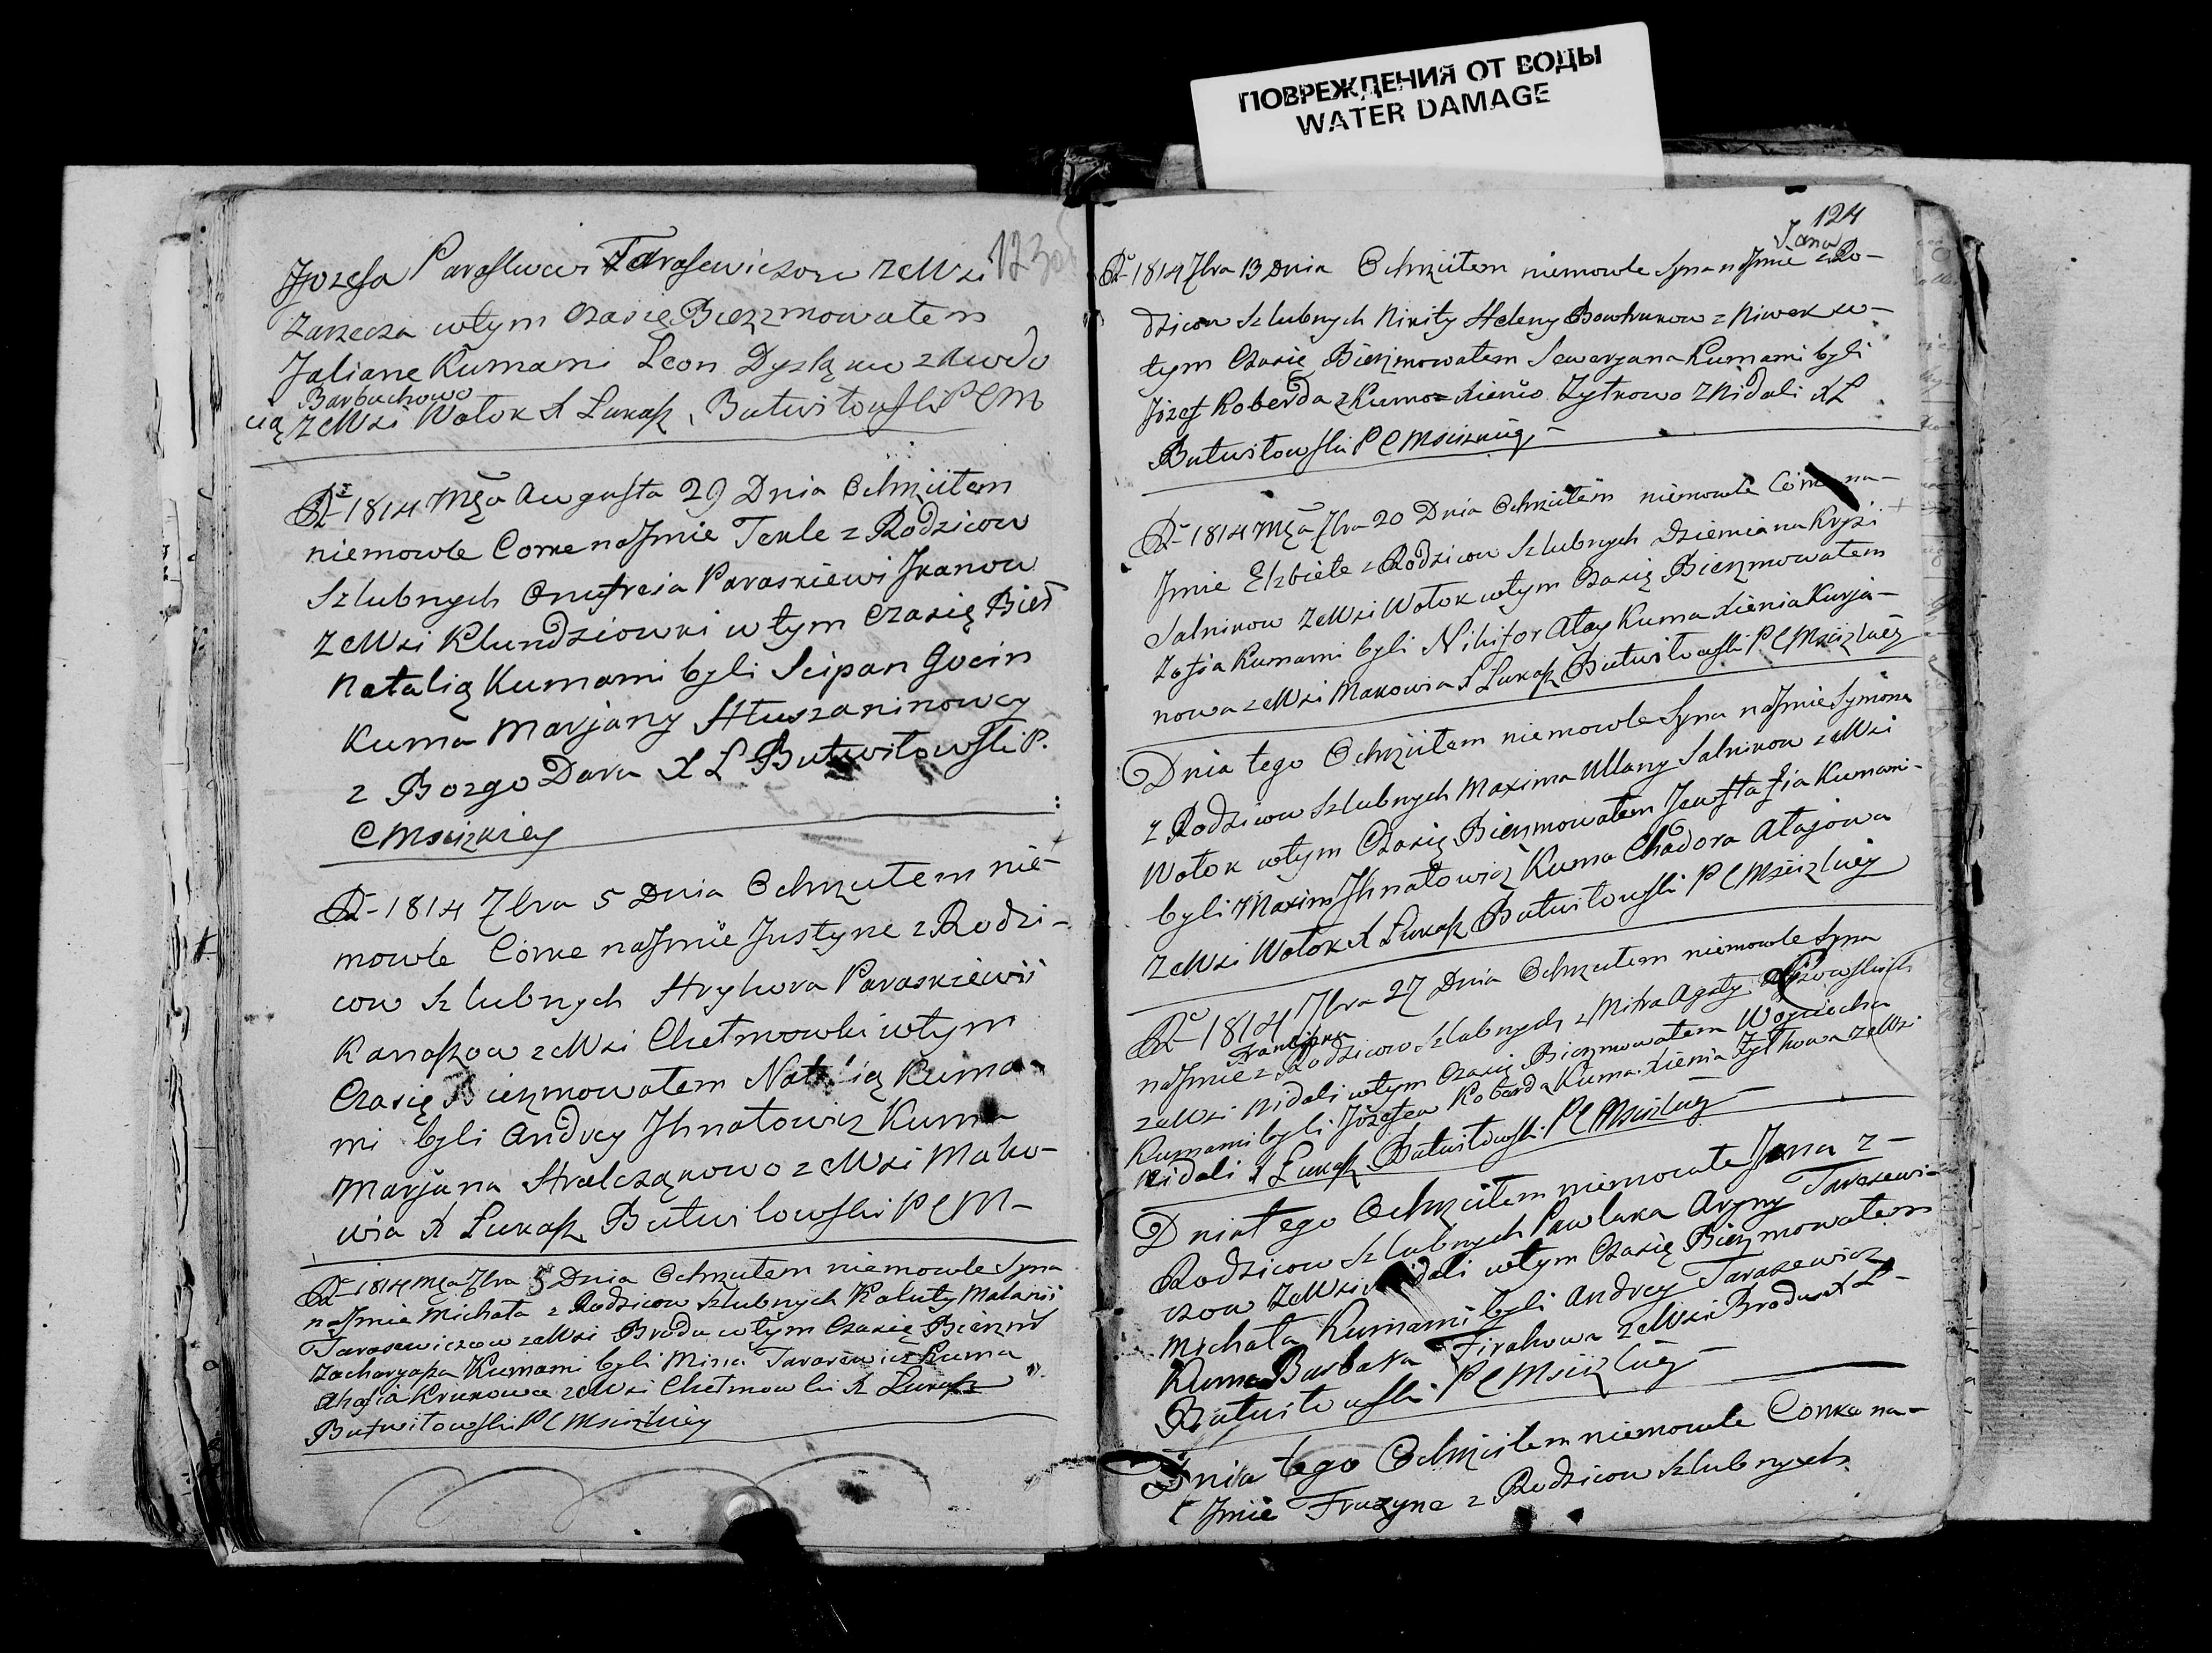 ПОВРЕЖДЕНИЯ ОТ ВОДЫ
WATER DAMAGE
123об
Jozefa Paraskewi Tarasewiczow ze Wsi
Zarzecza w tym Czasię Bierzmowałem
Juliane Kumami Leon Dyszk
Barbuchowo
cią ze Wsi Wołok X Łukasz Butwiłowski P C M
R 1814 Mca Augusta 29 Dnia Ochrzciłem
niemowle Corke na Jmie Tekle z Rodzicow
Szlubnych Onufreia Paraskiewi Jkanow
ze Wsi Klundziowki w tym Czasię Bierz
Natalią Kumami byli Scipan Gucin
Kuma Marjany Hłuszaninowey
z Bozgo Dara X L Butwiłowski P.
C Mscizkiey
R 1814 7bra 5 Dnia Ochrzciłem nie-
mowle Corke na Jmie Justyne z Rodzi-
cow Szlubnych Hryhora Paraskiewii
Kanaszow ze Wsi Chełmowki w tym
Czasię Bierzmowałem Natalią Kuma
mi byli Andrey Jhnatowicz Kuma
Marjana Stralcząkowo ze Wsi Mako-
wia X Łukasz Butwilowski P C M-
R 1814 Mca 7bra 5 Dnia Ochrzciłem niemowle Syna
na Jmie Michała z Rodzicow Szlubnych Kaluty Malanii
Tarasewiczow ze Wsi Brodu w tym Czasię Bierzm
Zacharyasza Kumami byli Mina Tarasewicz Kuma
Ahafia Krukowa ze Wsi Chełmowki X Łukasz
Butwiłowski P C Mscizkiey
124
Jana
R 1814 7bra 13 Dnia Ochrzciłem niemowle Syna na Jmie z Ro-
dzicow Szlubnych Nikity Heleny Bowtrukow z Niwek w-
tym Czasię Bierzmowałem Sewarjana Kumami byli
Józef Koberda z Kumo= Xienio Zytkowo z Nidali X L
Butwiłowski P C Msciskiey
R 1814 Mca 7bra 20 Dnia Ochrzciłem niemowle Córke na-
Jmie Elzbiete z Rodzicow Szlubnych Dziemiana Kryzi
Salnikow ze Wsi Wołok w tym Czasię Bierzmowałem
Zofia Kumami byli Nikifor Ałay Kuma Xienia Kurja-
nowa ze Wsi Makowia X Łukasz Butwiłowski P C Mscizkiey
Dnia tego Ochrzciłem niemowle Syna na Jmie Symona
z Rodzicow Szlubnych Maxima Ullany Salnikow ze Wsi
Wołok w tym Czasię Bierzmowałem Jewstafia Kumami-
byli Maxim Jhnatowicz Kuma Chadora Ałajowa
ze Wsi Wołok X Łukasz Butwiłowski P C Mscizkiey
R 1814 7bra 27 Dnia Ochrzciłem niemowle Syna
Franciszka
na Jmie z Rodzicow Szlubnych z Mitra Agaty
ze Wsi Nidali w tym Czasię Bierzmowałem Woyciecha
Kumami byli Józefem Koberda Kuma Xienia Zytkowa ze Wsi
Nidali X Łukasz Butwiłowski P C Mscizkiey
Dnia tego Ochrzciłem niemowle Jana z-
Rodzicow Szlubnych Pawluka Aryny Tarasewi-
czow ze Wsi Nidali w tym Czasię Bierzmowałem
Michała Kumami byli Andrey Tarasewicz
Kuma Barbara Firahowa ze Wsi Brodu X L-
Butwiłowski P C Mscizkiey
Dnia tego Ochrzciłem niemowle Corke na-
Jmie Fruzyne z Rodzicow Szlubnych